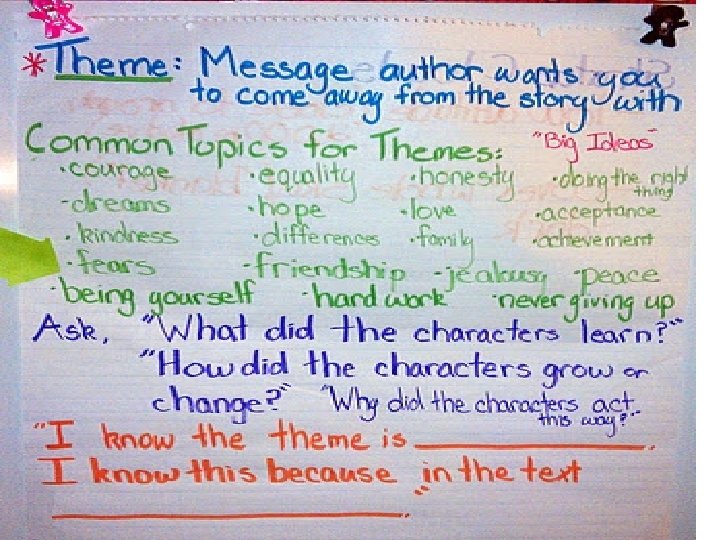 *Theme: Message author wants you
to come away from the story with
Common Topics for Themes: "Big Ideas"
·courage ·equality ·honesty ·doing the right thing
-dreams ·hope ·love ·acceptance
·kindness ·differences ·family ·achievement
·fears -friendship -jealousy -peace
·being yourself ·hard work ·never giving up
Ask, "What did the characters learn?"
"How did the characters grow or
change?" "Why did the characters act
this way?"
"I know the theme is ____________.
I know this because in the text
____________________.